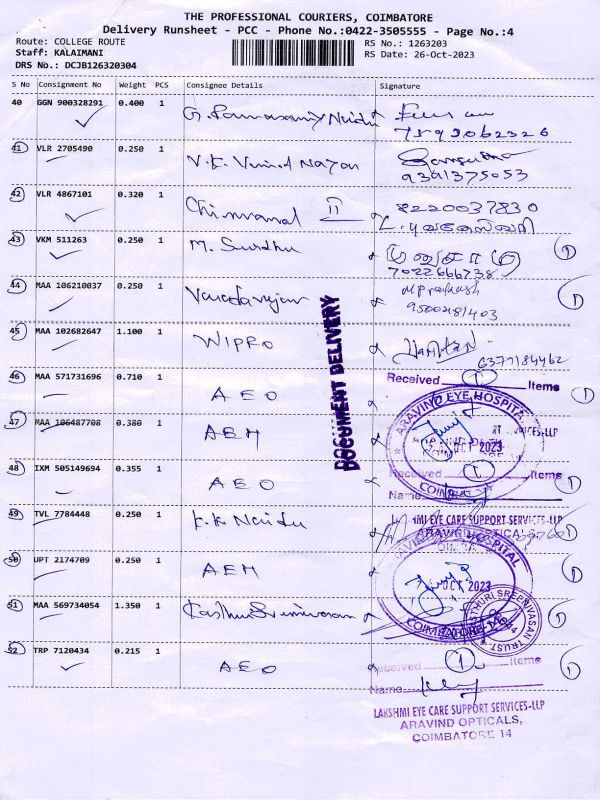 THE PROFESSIONAL COURIERS, COIMBATORE
Delivery Runsheet - PCC - Phone No.:0422-3505555 - Page No.:4
Route: COLLEGE ROUTE
Staff: KALAIMANI
DRS No.: DCJB126320304
RS No.: 1263203
RS Date: 26-Oct-2023
S No Consignment No Weight PCS Consignee Details Signature
40 GGN 900328291 0.400 1
41 VLR 2705490 0.250 1 V.K. Vinod Nayan
9391375053
42 VLR 4867101 0.320 1 II
8220037830
43 VKM 511263 0.250 1 M.
7022666738 1
44 MAA 106210037 0.250 1 Varadarajan
M Prakash
9500281403 1
45 MAA 102682647 1.100 1 WIPRO
6377184462
DOCUMENT DELIVERY
46 MAA 571731696 0.710 1 AEO
Received 1 Items 1
ARAVIND EYE HOSPITAL
47 MAA 106487708 0.380 1 AEH
OCT 2023
48 IXM 505149694 0.355 1 AEO
Received 1 Items 1
Name
COIMBATORE
49 TVL 7784448 0.250 1 K.K Naidu
LAKSHMI EYE CARE SUPPORT SERVICES-LLP
ARAVIND OPTICALS
50 UPT 2174709 0.250 1 AEH
ARAVIND EYE HOSPITAL
OCT 2023 1
51 MAA 569734054 1.350 1 Kasthuri Sreenivasan
COIMBATORE
KASTHURI SREENIVASAN TRUST
52 TRP 7120434 0.215 1 AEO
Received 1 Items 1
Name
LAKSHMI EYE CARE SUPPORT SERVICES-LLP
ARAVIND OPTICALS,
COIMBATORE 14